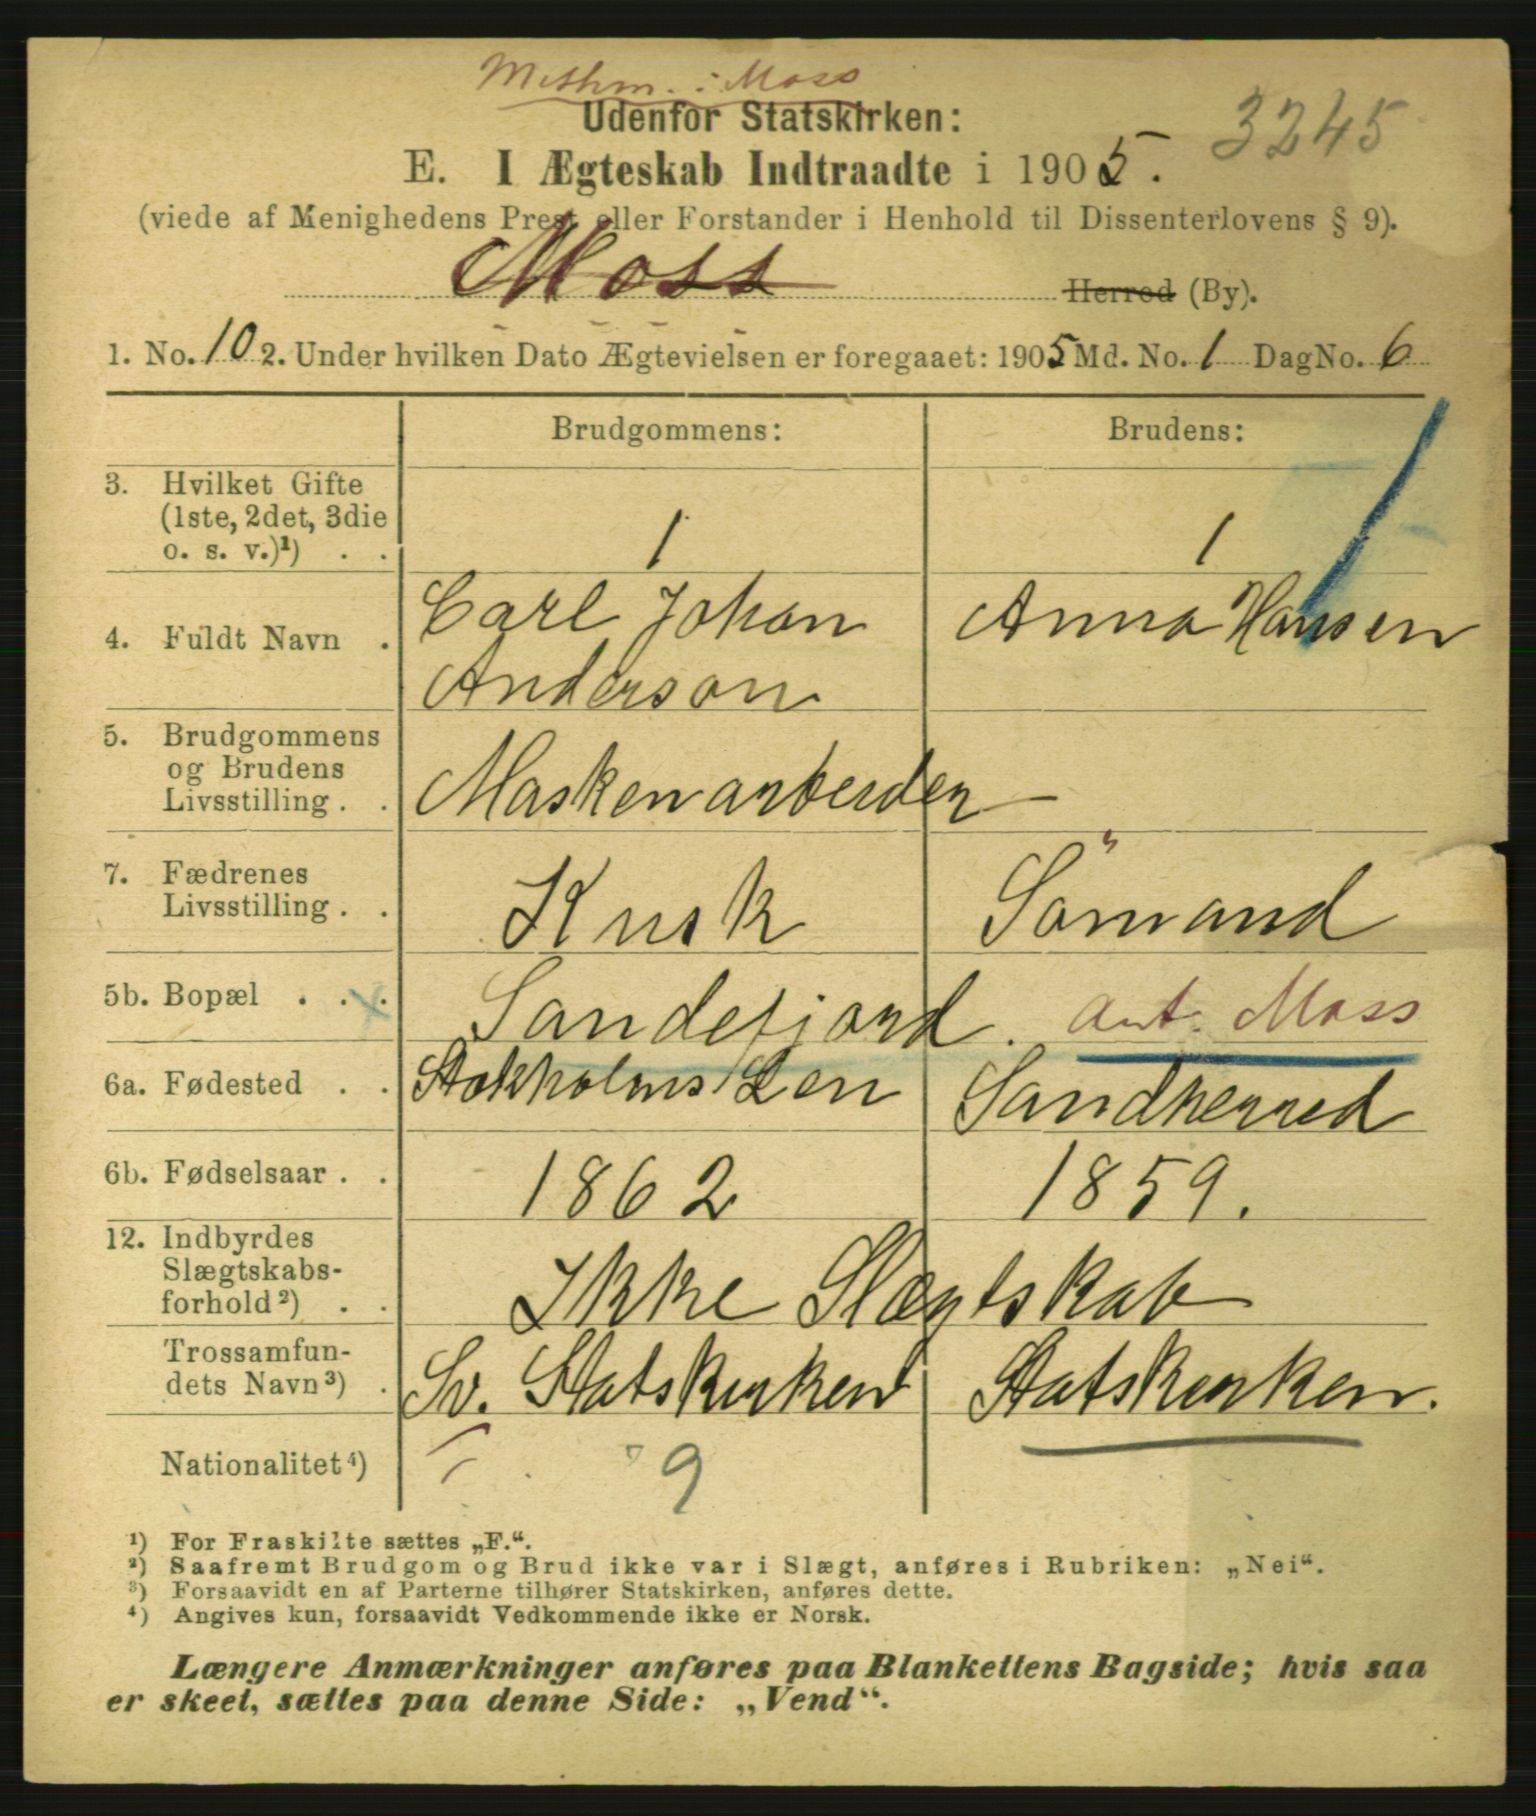 Methm. i Moss
Udenfor Statskirken:
3245
E. I Ægteskab Indtraadte i 1905.
(viede af Menighedens Prest eller Forstander i Henhold til Dissenterlovens § 9).
Moss Herred (By).
1. No. 10 2. Under hvilken Dato Ægtevielsen er foregaaet: 1905 Md. No. 1 Dag No. 6
Brudgommens: Brudens:
3. Hvilket Gifte
(1ste, 2det, 3die
o. s. v.)¹) . . 1 1
4. Fuldt Navn . Carl Johan Anna Hansen
Anderson
5. Brudgommens
og Brudens
Livsstilling . . Maskenarbeider —
7. Fædrenes
Livsstilling . . Kusk Sömand
5b. Bopæl . . . Sandefjord. ant. Moss
6a. Fødested . . Stokholms Len Sandherred
6b. Fødselsaar . . 1862 1859.
12. Indbyrdes
Slægtskabs-
forhold²) . . Ikke Slægtskab
Trossamfun-
dets Navn³) . Sv. Statskirken Statskirken.
Nationalitet⁴) 9
¹) For Fraskilte sættes „F.“.
²) Saafremt Brudgom og Brud ikke var i Slægt, anføres i Rubriken: „Nei“.
³) Forsaavidt en af Parterne tilhører Statskirken, anføres dette.
⁴) Angives kun, forsaavidt Vedkommende ikke er Norsk.
Længere Anmærkninger anføres paa Blankettens Bagside; hvis saa
er skeet, sættes paa denne Side: „Vend“.